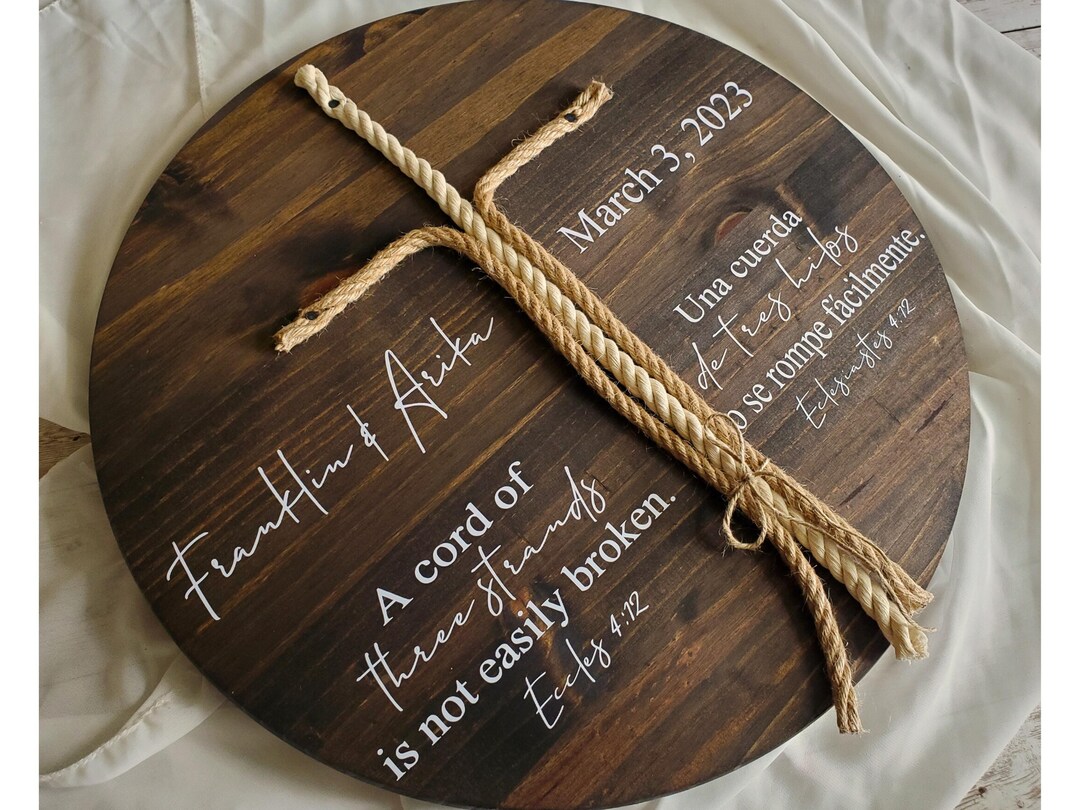 Franklin & Arika
March 3, 2023
A cord of
three strands
is not easily broken.
Eccles 4:12
Una cuerda
de tres hilos
o se rompe fácilmente.
Eclesiastes 4:12